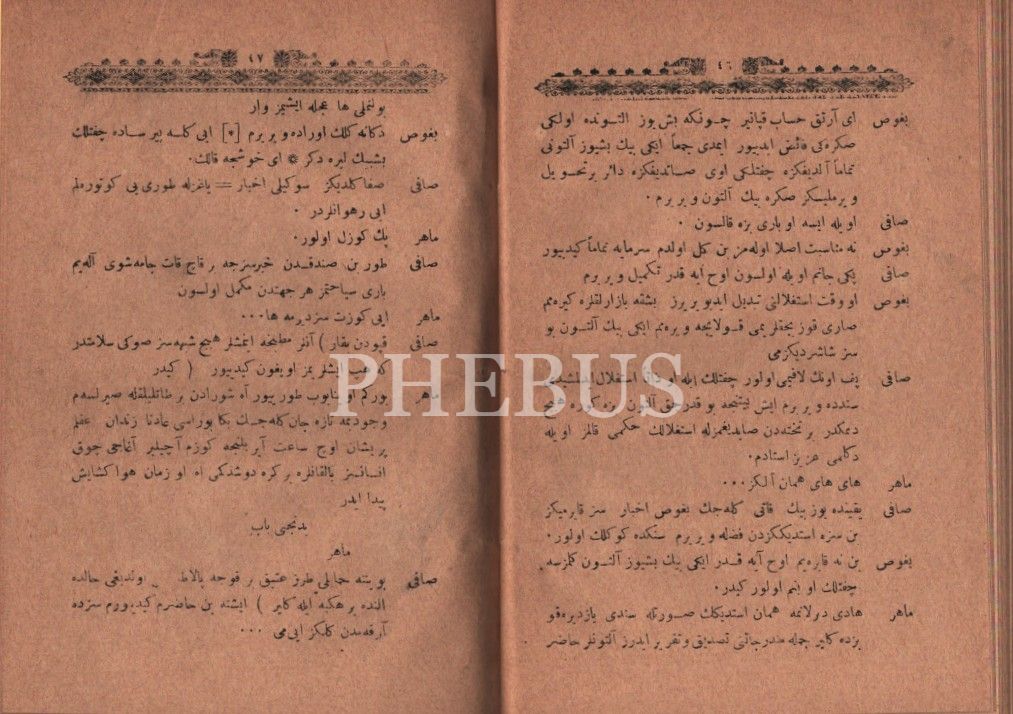 ٤٦
بغوص ای آرتق حساب قپانیر چونکه بش یوز التونده اولکی
صکره کی فائض ایدییور ایمدی جمعاً ایکی بیك بشیوز آلتونی
تماماً آلدیفکزه چفتلکی اوی صاتدیفکزه دائر برتحویل
ویرملیسکز صکره بیك آلتون ویررم ٠
صافی اویله ایسه او باری بزه قالسون ٠
بغوص نه مناسبت اصلا اوله مز بن کل اولدم سرمایه تماماً کیدییور
صافی پکی جانم اویله اولسون اوح آیه قدر تکمیل ویررم
بغوص او وقت استغلالنی تبدیل ایدیویریرز بشقه بازارلقلره کیره میم
صاری قوز یحقلریمی قولایجه ویره میم ایکی بیك آلتون بو
سز شاشردیکزمی
صافی پف اونك لاقیمی اولور چفتلك ایله او
سندده ویررم ایش بو قدر
دیمکدر بر تخته دن استغلالك حکمی قالمز اویله
دکلمی عزیز استادم ٠
ماهر های های همان آلکز ٠٠٠
صافی یقینده یوز بیك قاتی کله جك بغوص اخبار سز قایرمیکز
بن سزه استدیککزدن فضله ویررم سنکده کوکلك اولور ٠
بغوص بن نه قایره یم اوح آیه قدر ایکی بیك بشیوز آلتون کلمزسه
چفتلك او بنم اولور کیدر ٠
ماهر هادی همان استدیکك صورتله سندی یازدیره قو
بزده کایر جمله مندرجاتنی تصدیق وتقریر ایدرز آلتونلر حاضر
٤٧
بولنملی ها عجله ایشیمز وار
بغوص دکانه کلك اوراده ویررم [*] ایی کلسه بیر ساده چفتلك
بشبیك لیره دکر * ای خوشجه قالك ٠
صافی صفا کلدیکز سوکیلی اخبار = یانغزله طوری یی کوتورملم
ایی رهوانلردر ٠
ماهر پك کوزل اولور ٠
صافی طور بن صندقدن خبرسزجه بر قاچ قات جامه شوی آله یم
باری سیاحتمز هر جهتدن مکمل اولسون
ماهر ایی کوزت سزدیرمه ها ٠٠٠
صافی قپودن بقار ) آنلر مطبخه ایتمشلر هیچ شبهه سز صوکی سلامتدر
که ایشلریمز اویغون کیدییور ( کیدر
ماهر آه شورادن بر طاتلیلقله صیرلسه م
وجودیمه تازه جان کله جك بکا بوراسی عادتا زندان
پریشان اوچ ساعت کوزم آجیلیر آتماجی چوق
افسانسز یالقانلره بر کره دوشدکمی اه او زمان هوا کشایش
پیدا ایدر
یدنجی باب
ماهر
صافی طرز عتیق بر قوجه پالاط حالده
النده بر هکبه ایله کایر ) ایشته بن حاضرم کیدییورم سزده
آرقه مدن کلکز ایی می ٠٠٠
PHEBUS